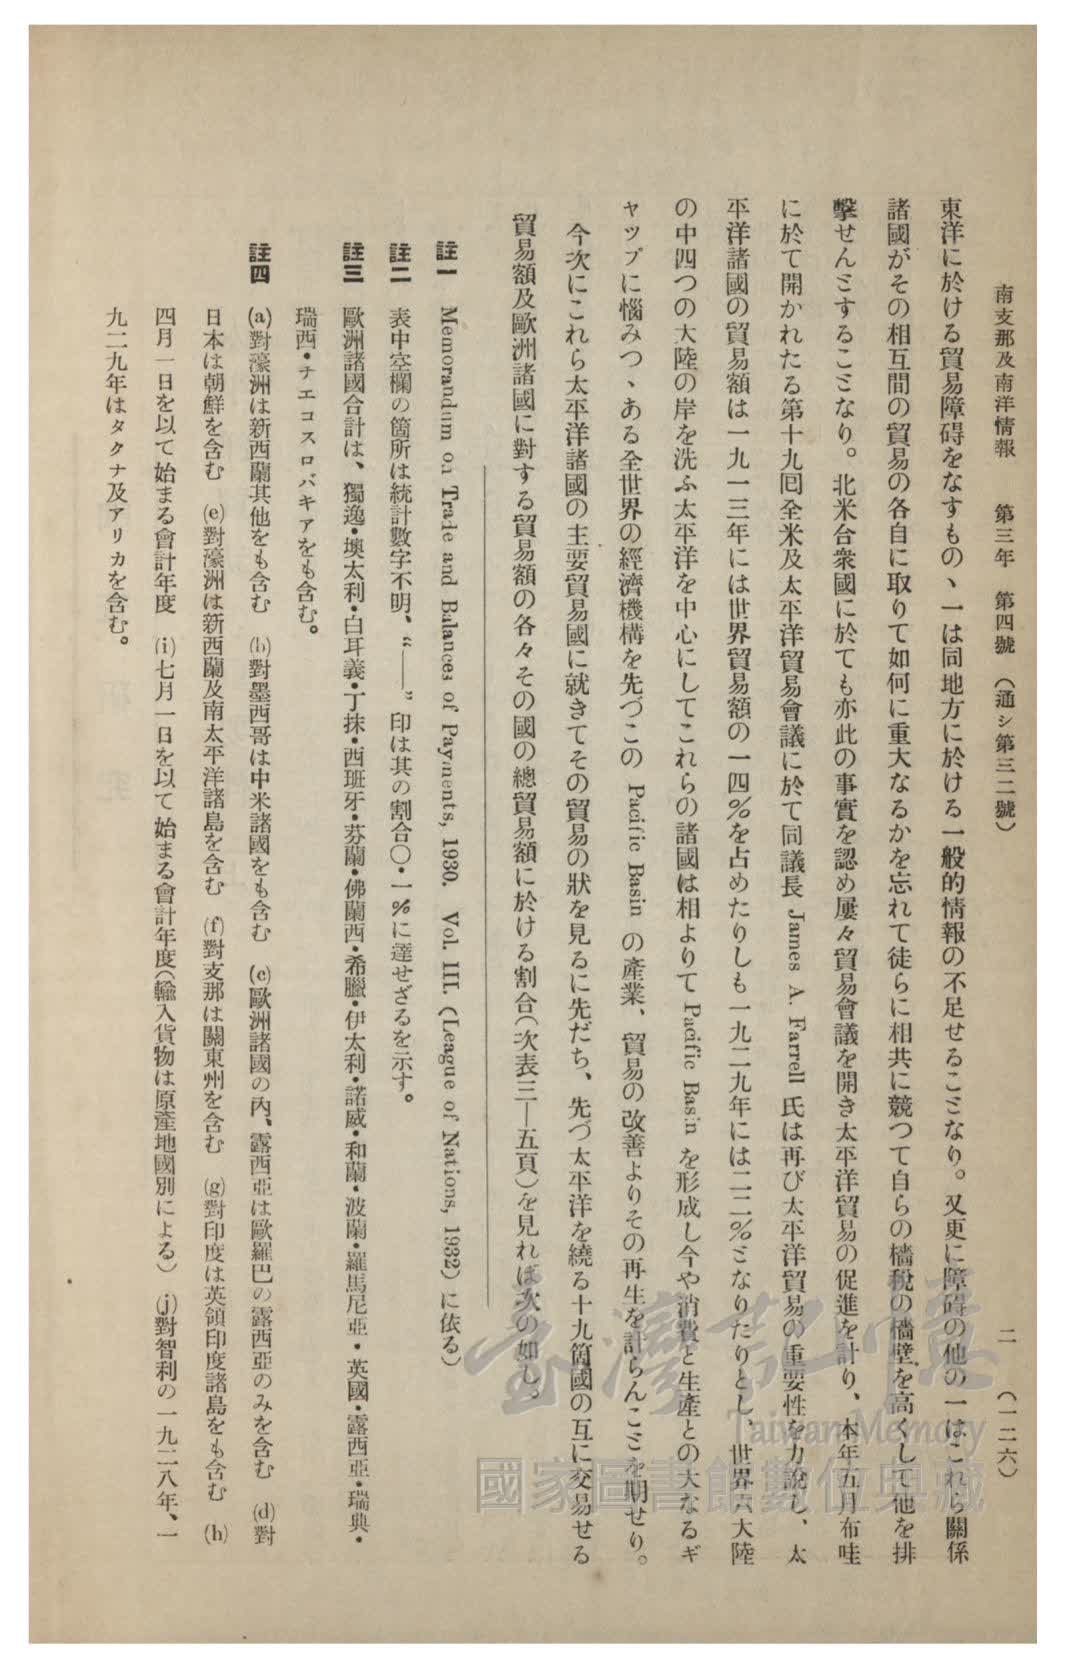 南支那及南洋情報　第三年　第四號　（通シ第三二號）　二　（一二六）
東洋に於ける貿易障碍をなすもの、一は同地方に於ける一般的情報の不足せることなり。又更に障碍の他の一はこれら關係
諸國がその相互間の貿易の各自に取りて如何に重大なるかを忘れて徒らに相共に競つて自らの檣稅の檣壁を高くして他を排
擊せんとすることなり。北米合衆國に於ても亦此の事實を認め屢々貿易會議を開き太平洋貿易の促進を計り、本年五月布哇
に於て開かれたる第十九囘全米及太平洋貿易會議に於て同議長 James A. Farrell 氏は再び太平洋貿易の重要性を力說し、太
平洋諸國の貿易額は一九一三年には世界貿易額の一四％を占めたりしも一九二九年には二二％となりたりとし、世界六大陸
の中四つの大陸の岸を洗ふ太平洋を中心にしてこれらの諸國は相よりて Pacific Basin を形成し今や消費と生產との大なるギ
ャップに惱みつゝある全世界の經濟機構を先づこの Pacific Basin の產業、貿易の改善よりその再生を計らんことを期せり。
今次にこれら太平洋諸國の主要貿易國に就きてその貿易の狀を見るに先だち、先づ太平洋を繞る十九箇國の互に交易せる
貿易額及歐洲諸國に對する貿易額の各々その國の總貿易額に於ける割合（次表三―五頁）を見れば次の如し。
註一　Memorandum on Trade and Balances of Payments, 1930. Vol. III. (League of Nations, 1932) に依る）
註二　表中空欄の箇所は統計數字不明、“――” 印は其の割合〇・一％に達せざるを示す。
註三　歐洲諸國合計は、獨逸・墺太利・白耳義・丁抹・西班牙・芬蘭・佛蘭西・希臘・伊太利・諾威・和蘭・波蘭・羅馬尼亞・英國・露西亞・瑞典・
瑞西・チエコスロバキアをも含む。
註四　(a)對濠洲は新西蘭其他をも含む　(b)對墨西哥は中米諸國をも含む　(c)歐洲諸國の內、露西亞は歐羅巴の露西亞のみを含む　(d)對
日本は朝鮮を含む　(e)對濠洲は新西蘭及南太平洋諸島を含む　(f)對支那は關東州を含む　(g)對印度は英領印度諸島をも含む　(h)
四月一日を以て始まる會計年度　(i)七月一日を以て始まる會計年度（輸入貨物は原產地國別による）　(j)對智利の一九二八年、一
九二九年はタクナ及アリカを含む。
臺灣記憶
Taiwan Memory
國家圖書館數位典藏